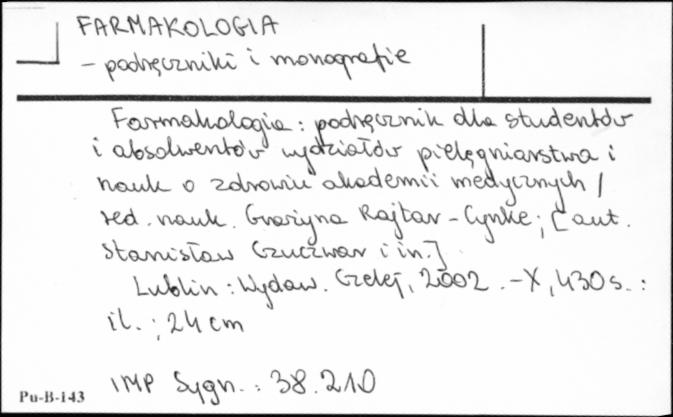 FARMAKOLOGIA
- podręczniki i monografie
Farmakologia : podręcznik dla studentów
i absolwentów wydziałów pielęgniarstwa i
nauk o zdrowiu akademii medycznych /
red. nauk. Grażyna Rajtar-Cynke ; [aut.
Stanisław Czuczwar i in.]
Lublin : Wydaw. Czelej, 2002 . - X, 430 s. :
il. ; 24 cm
IMP Sygn. : 38.210
Pu-B-143